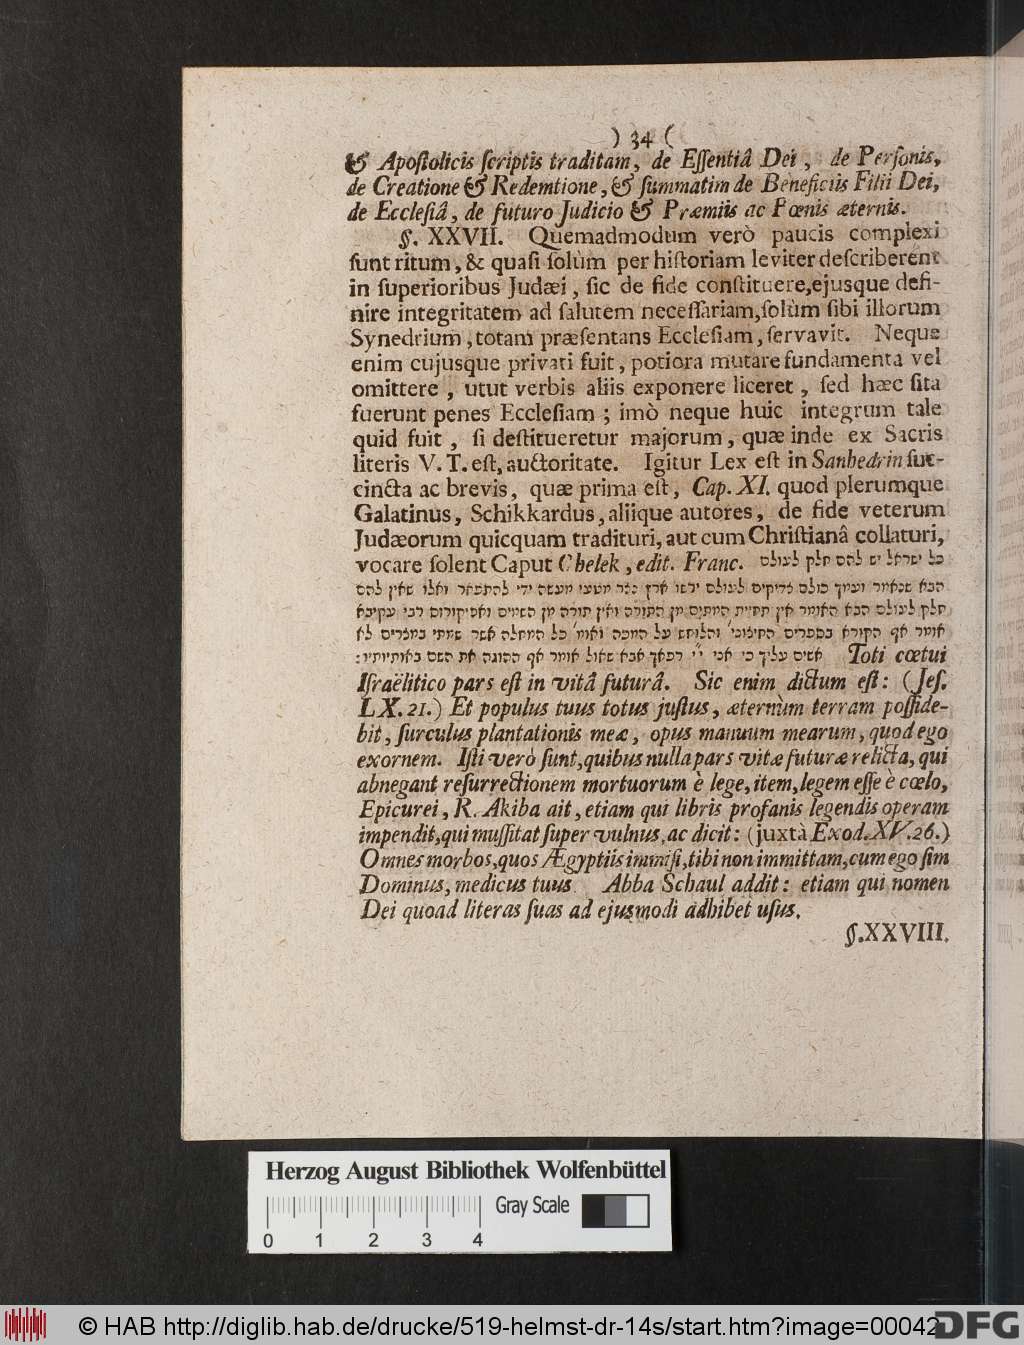 ) 34 (
& Apoſtolicis ſcriptis traditam, de Eſſentiâ Dei, de Perſonis,
de Creatione & Redemtione, & ſummatim de Beneficiis Filii Dei,
de Eccleſiâ, de futuro Judicio & Præmiis ac Pœnis æternis.
§. XXVII. Quemadmodum verò paucis complexi
ſunt ritum, & quaſi ſolùm per hiſtoriam leviter deſcriberent
in ſuperioribus Judæi, ſic de fide conſtituere, ejusque defi-
nire integritatem ad ſalutem neceſſariam, ſolùm ſibi illorum
Synedrium, totam præſentans Eccleſiam, ſervavit. Neque
enim cujusque privati fuit, potiora mutare fundamenta vel
omittere, utut verbis aliis exponere liceret, ſed hæc ſita
fuerunt penes Eccleſiam; imò neque huic integrum tale
quid fuit, ſi deſtitueretur majorum, quæ inde ex Sacris
literis V. T. eſt, auctoritate. Igitur Lex eſt in Sanhedrin ſuc-
cincta ac brevis, quæ prima eſt, Cap. XI. quod plerumque
Galatinus, Schikkardus, aliique autores, de fide veterum
Judæorum quicquam tradituri, aut cum Chriſtianâ collaturi,
vocare ſolent Caput Chelek, edit. Franc. כל ישראל יש להם חלק לעולם
הבא שנאמר ועמך כולם צדיקים לעולם ירשו ארץ נצר מטעי מעשה ידי להתפאר ואלו שאין להם
חלק לעולם הבא האומר אין תחיית המתים מן התורה ואין תורה מן השמים ואפיקורוס רבי עקיבא
אומר אף הקורא בספרים החיצוני' והלוחש על המכה ואומ' כל המחלה אשר שמתי במצרים לא
אשים עליך כי אני יי' רפאך אבא שאול אומר אף ההוגה את השם באותיותיו: Toti cœtui
Iſraëlitico pars eſt in vitâ futurâ. Sic enim dictum eſt: (Jeſ.
LX. 21.) Et populus tuus totus juſtus, æternùm terram poſſide-
bit, ſurculus plantationis meæ, opus manuum mearum, quod ego
exornem. Iſti verò ſunt, quibus nulla pars vitæ futuræ relicta, qui
abnegant reſurrectionem mortuorum è lege, item, legem eſſe è cœlo,
Epicurei, R. Akiba ait, etiam qui libris profanis legendis operam
impendit, qui muſſitat ſuper vulnus, ac dicit: (juxtà Exod. XV. 26.)
Omnes morbos, quos Ægyptiis immiſi, tibi non immittam, cum ego ſim
Dominus, medicus tuus. Abba Schaul addit: etiam qui nomen
Dei quoad literas ſuas ad ejusmodi adhibet uſus.
§. XXVIII.
Herzog August Bibliothek Wolfenbüttel
Gray Scale
0 1 2 3 4
© HAB http://diglib.hab.de/drucke/519-helmst-dr-14s/start.htm?image=00042
DFG